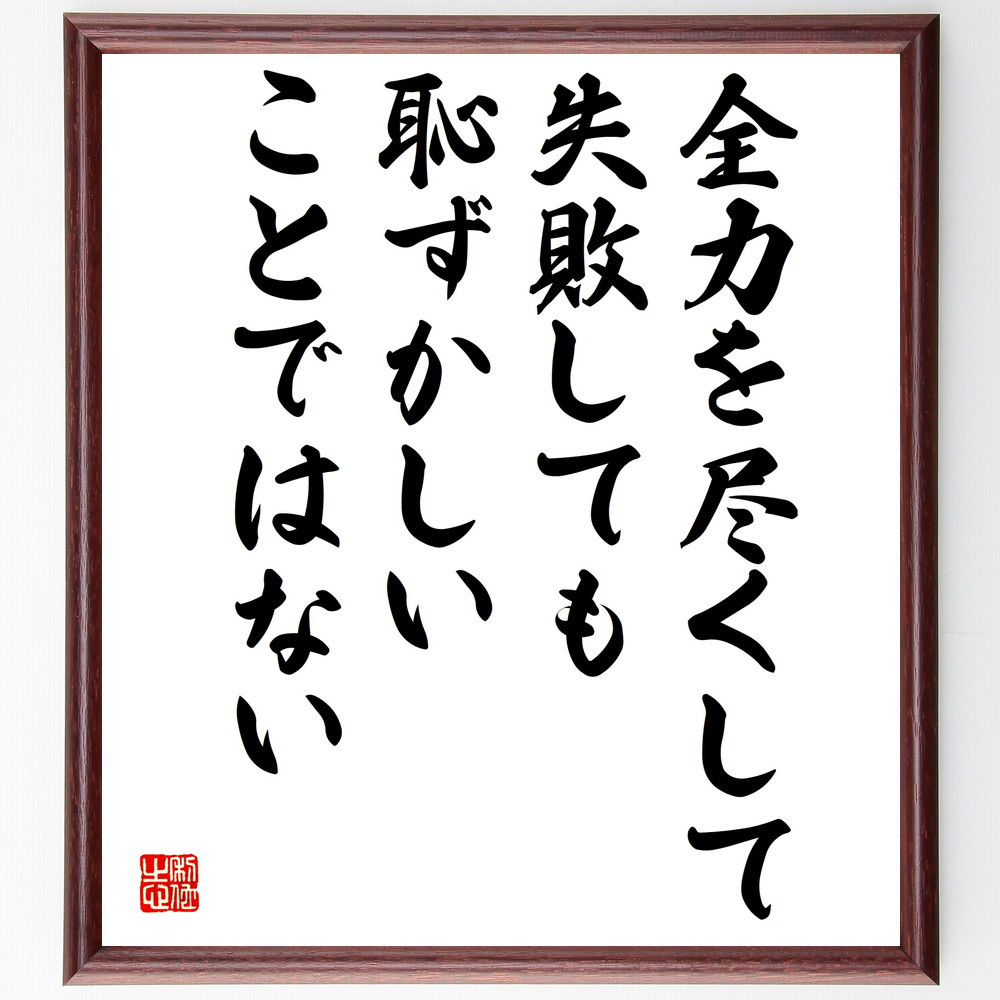 全力を尽くして
失敗しても
恥ずかしい
ことではない